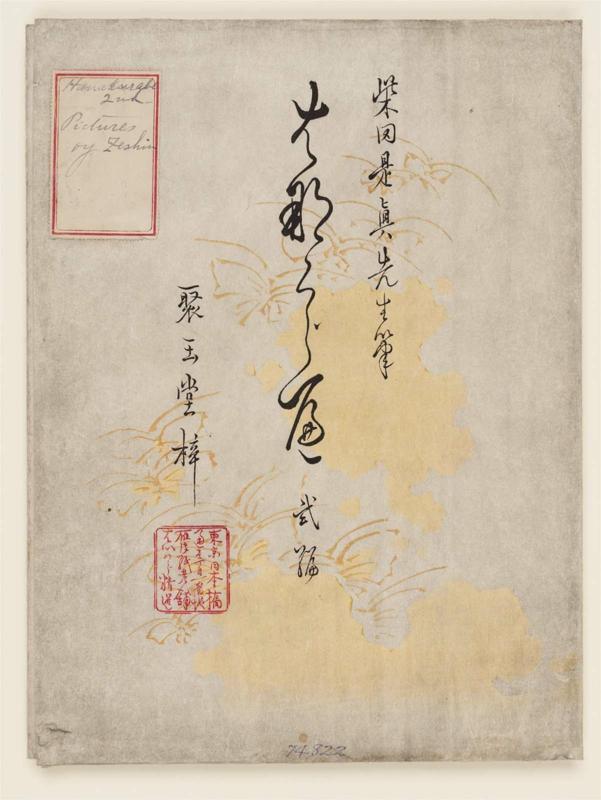 Hanakurabe
2nd
Pictures
by Zeshin
柴田是眞先生筆
はなくらべ 弐編
聚玉堂梓
東京日本橋
74.822